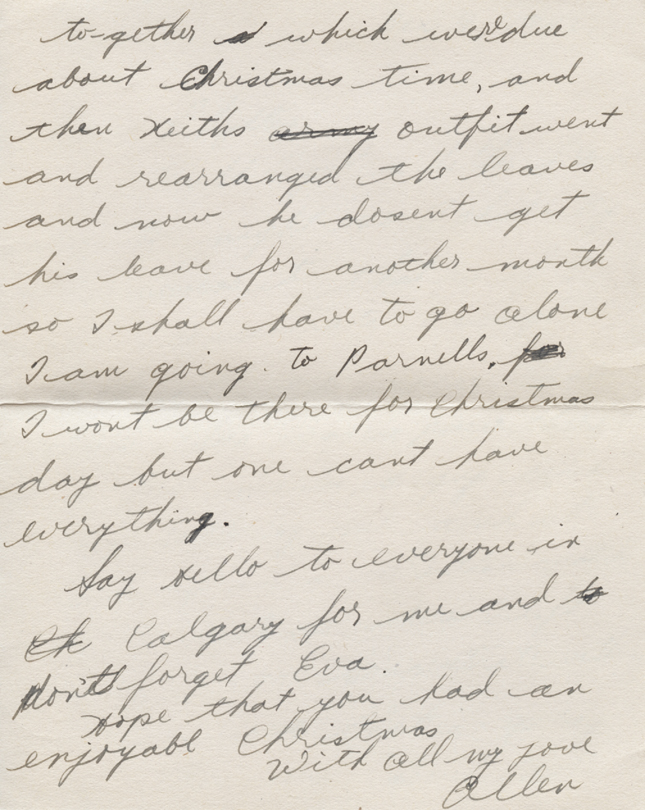 to-gether which were due
about Christmas time, and
then Keiths army outfit went
and rearranged the leaves
and now he dosent get
his leave for another month
so I shall have to go alone
I am going. to Parnells, for
I wont be there for Christmas
day but one cant have
everything.
Say hello to everyone in
Ck Calgary for me and to
dont forget Eva.
Hope that you had an
enjoyabl Christmas
With all my love
Allen